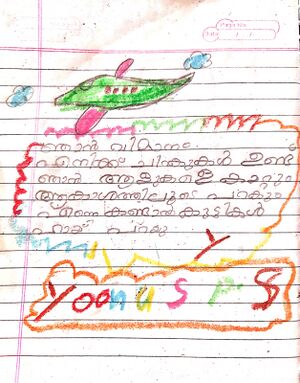 Page No.
Date
ഞാൻ വിമാനം.
എനിക്ക് ചിറകുകൾ ഉണ്ട്
ഞാൻ ആളുകളെ കയറ്റും
ആകാശത്തിലൂടെ പറകും
എന്നെ കണ്ടാൽ കുട്ടികൾ
റ്റാറ്റ പറയും
Yoonus P S